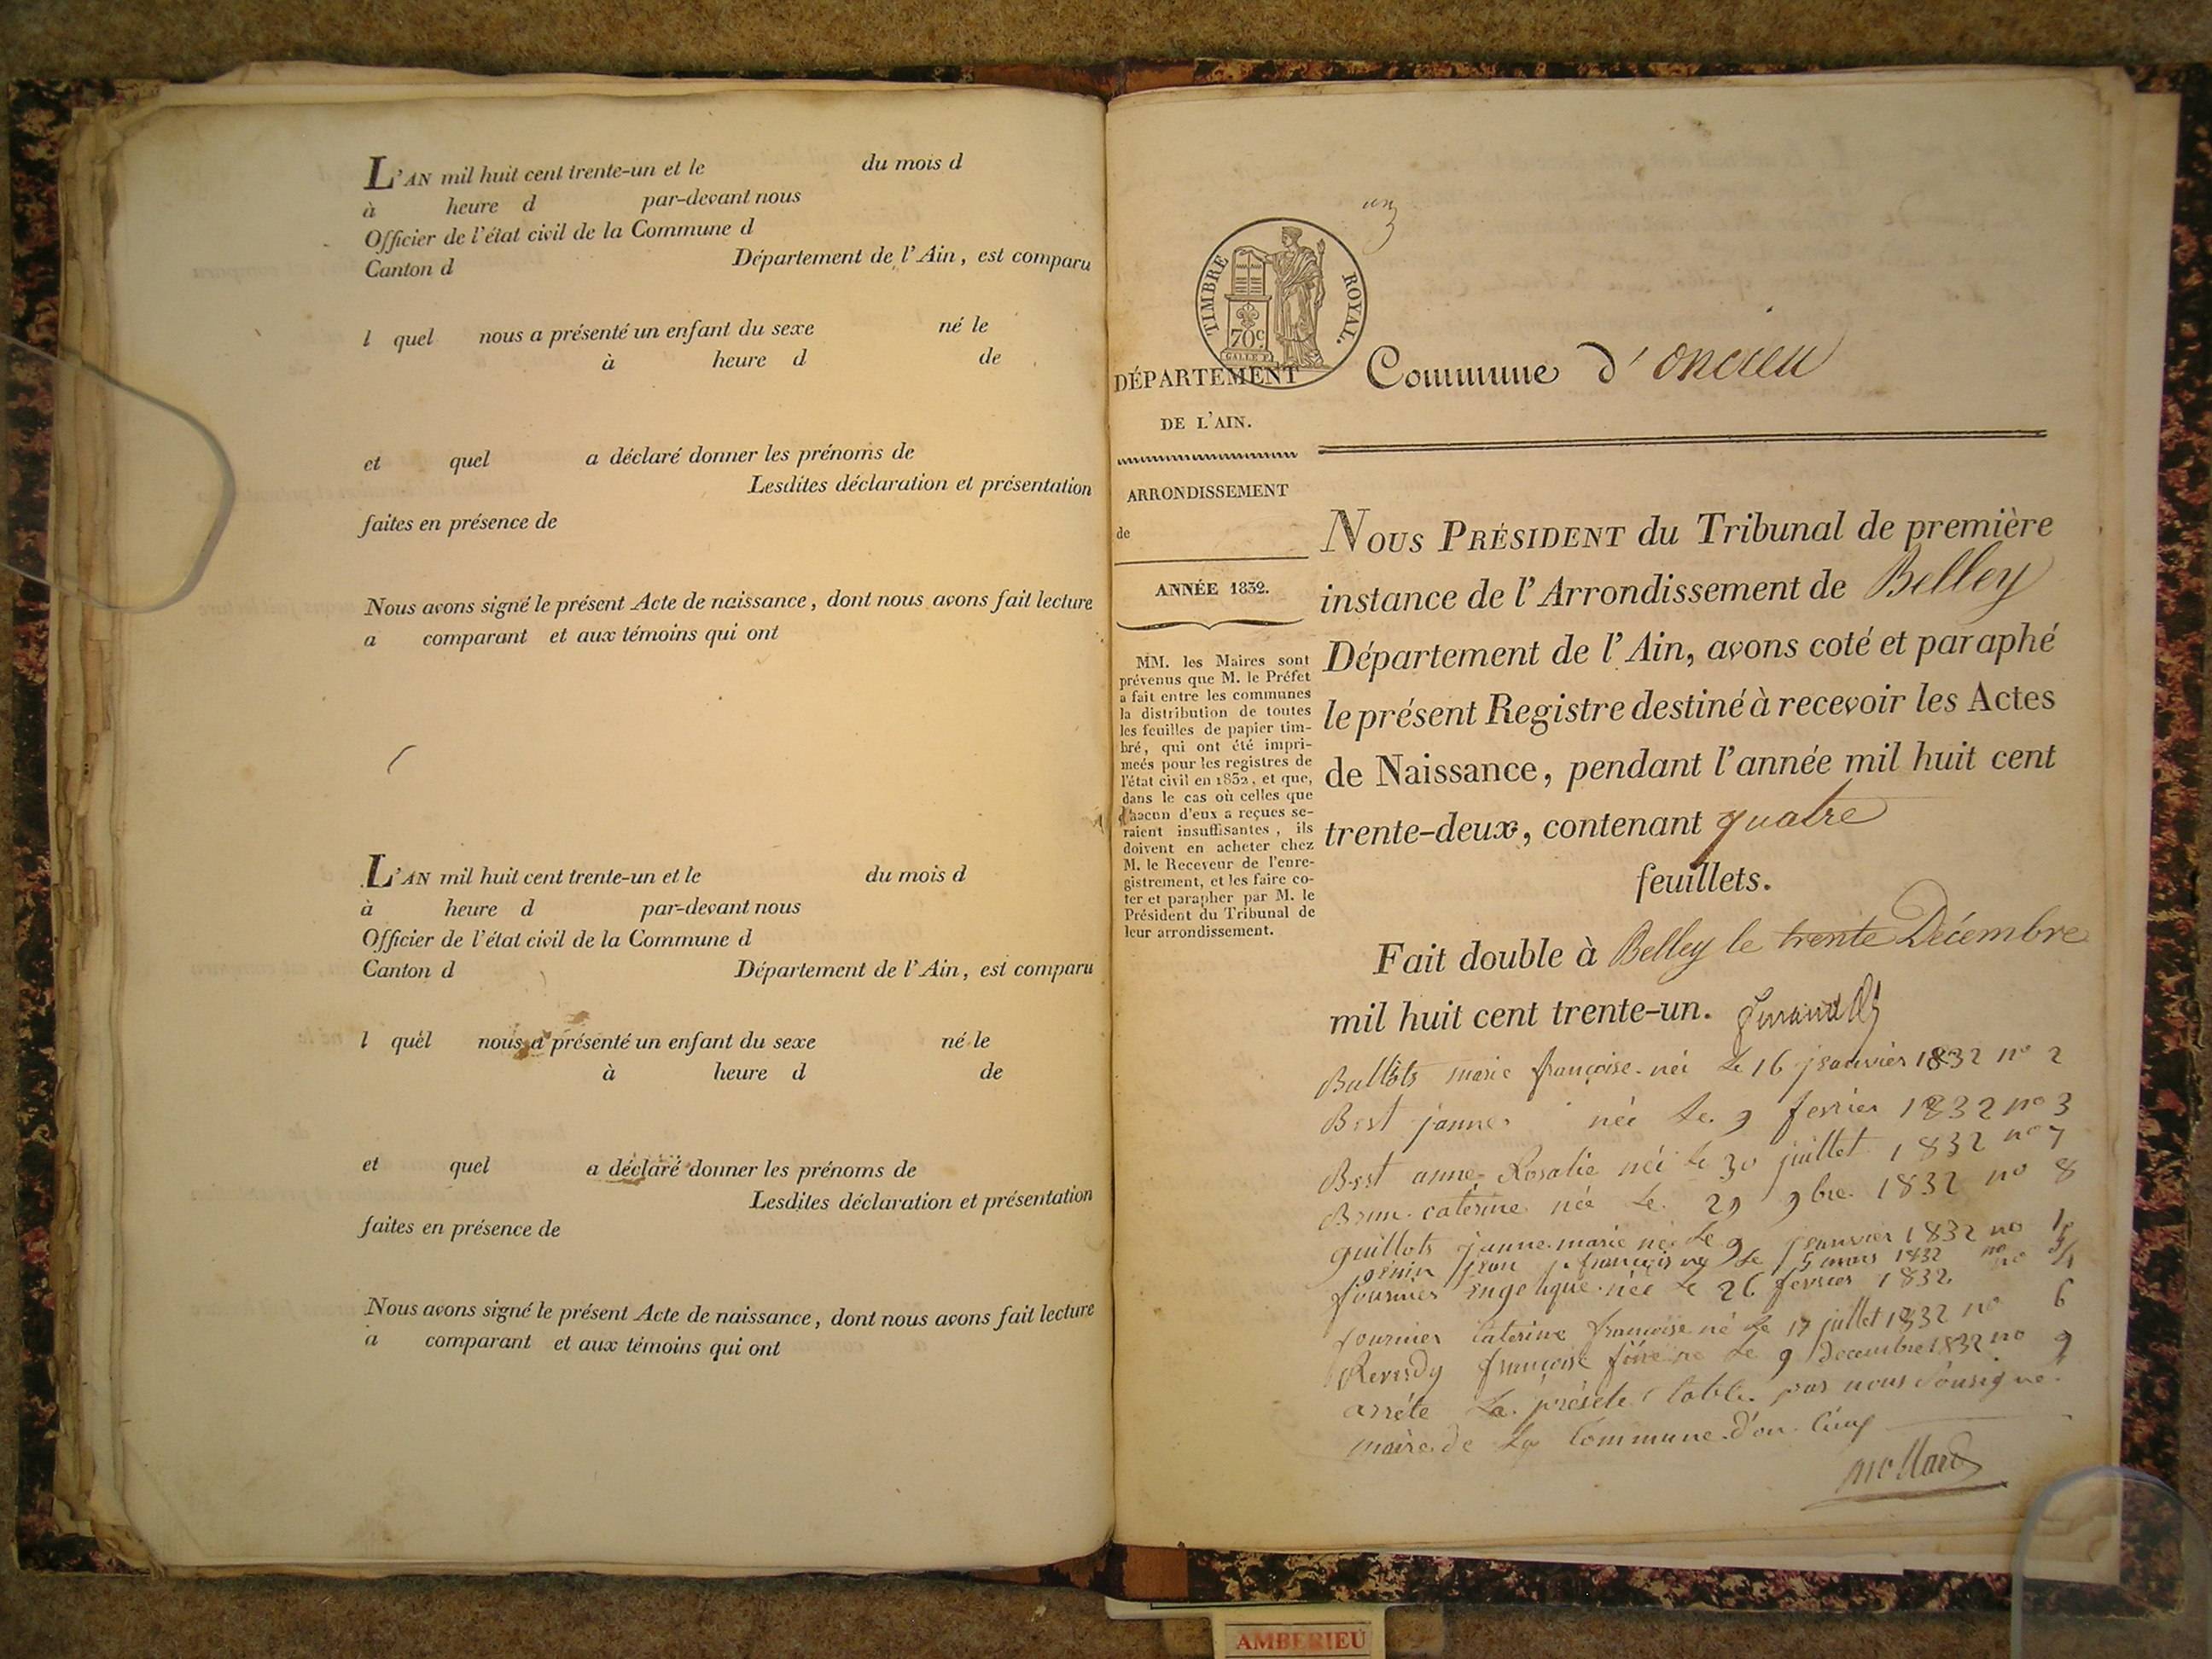 L'AN mil huit cent trente-un et le du mois d
à heure d par-devant nous
Officier de l'état civil de la Commune d
Canton d Département de l'Ain, est comparu
l quel nous a présenté un enfant du sexe né le
à heure d de
et quel a déclaré donner les prénoms de
Lesdites déclaration et présentation
faites en présence de
Nous avons signé le présent Acte de naissance, dont nous avons fait lecture
a comparant et aux témoins qui ont
L'AN mil huit cent trente-un et le du mois d
à heure d par-devant nous
Officier de l'état civil de la Commune d
Canton d Département de l'Ain, est comparu
l quel nous a présenté un enfant du sexe né le
à heure d de
et quel a déclaré donner les prénoms de
Lesdites déclaration et présentation
faites en présence de
Nous avons signé le présent Acte de naissance, dont nous avons fait lecture
a comparant et aux témoins qui ont
un
TIMBRE ROYAL.
70c
GALLE F.
DÉPARTEMENT
DE L'AIN.
ARRONDISSEMENT
de
ANNÉE 1832.
MM. les Maires sont
prévenus que M. le Préfet
a fait entre les communes
la distribution de toutes
les feuilles de papier tim-
bré, qui ont été impri-
meés pour les registres de
l'état civil en 1832, et que,
dans le cas où celles que
chacun d'eux a reçues se-
raient insuffisantes, ils
doivent en acheter chez
M. le Receveur de l'enre-
gistrement, et les faire co-
ter et parapher par M. le
Président du Tribunal de
leur arrondissement.
Commune d'oncieu
NOUS PRÉSIDENT du Tribunal de première
instance de l'Arrondissement de Belley
Département de l'Ain, avons coté et paraphé
le présent Registre destiné à recevoir les Actes
de Naissance, pendant l'année mil huit cent
trente-deux, contenant quatre
feuillets.
Fait double à Belley le trente Décembre
mil huit cent trente-un.
marie françoise née le 16 janvier 1832 no 2
Best janne née le 9 fevrier 1832 no 3
Best anne Rosalie née le 30 juillet 1832 no 7
Brun caterine née le 29 9bre 1832 no 8
guillots janne marie née le 9 janvier 1832 no 1
jean françois né le 15 mars 1832 no 5
fournier angelique née le 26 fevrier 1832 no 4
fournier caterine françoise né le 17 juillet 1832 no 6
Reverdy françoise le 9 decembre 1832 no 9
arréte la preséte table par nous sousigné
maire de la commune d'on cieux
mollard
AMBERIEU